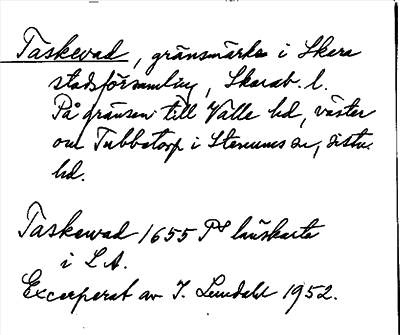 Täskevad, gränsmärke i Skara
stadsförsamling, Skarab. l.
På gränsen till Valle hd, väster
om Tubbetorp i Stenums sn,
hd.
Taskewad 1655 
i LA.
Excerperat av I. Lundahl 1952.